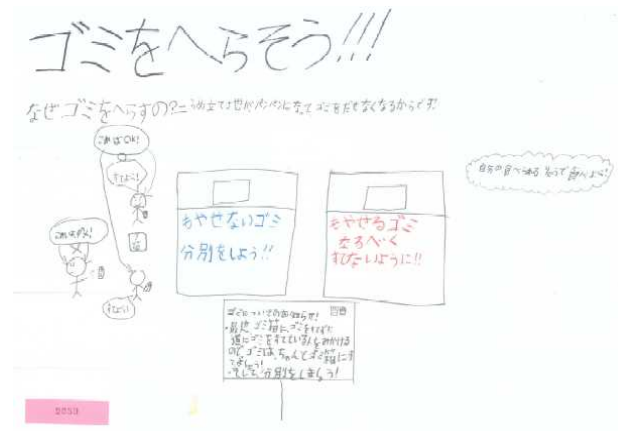 ゴミをへらそう!!!
なぜゴミをへらすの?=うめ立て地がパンパンになってゴミをだせなくなるからです!
これはOK!
すてよう!
もやせないゴミ
分別をしよう!!
もやせるゴミ
なるべく
すてないように!!
自分の食べられる
ゴミについてのお知らせ!
・最近ゴミ箱にゴミをすてずに
道にゴミをすてている人をみかける
のでゴミは、ちゃんとゴミ箱にす
てましょう!
・そして分別をしましょう!
2353